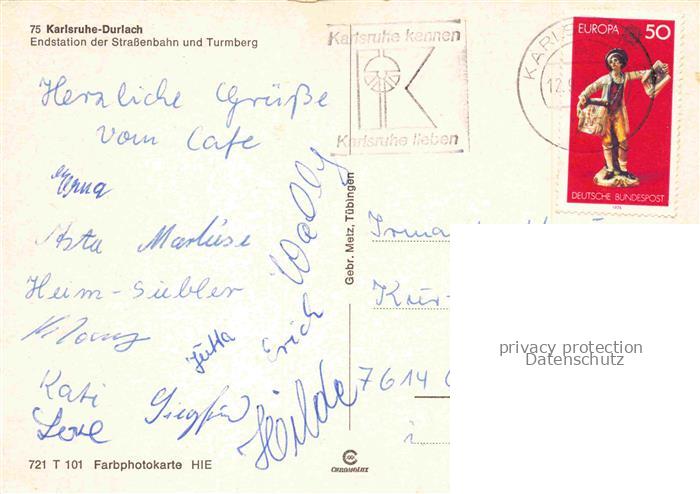 75 Karlsruhe-Durlach
Endstation der Straßenbahn und Turmberg
Herzliche Grüße
vom Cafe
Asta Marliese
Heim-Siebler
Jutta
Erich
Wally
Kati Siegfrid
Lore
Hilde
721 T 101 Farbphotokarte HIE
Gebr. Metz, Tübingen
CHROMOLUX
Karlsruhe kennen
K
Karlsruhe lieben
EUROPA 50
DEUTSCHE BUNDESPOST
1976
Irma
Kur-
7614
privacy protection
Datenschutz